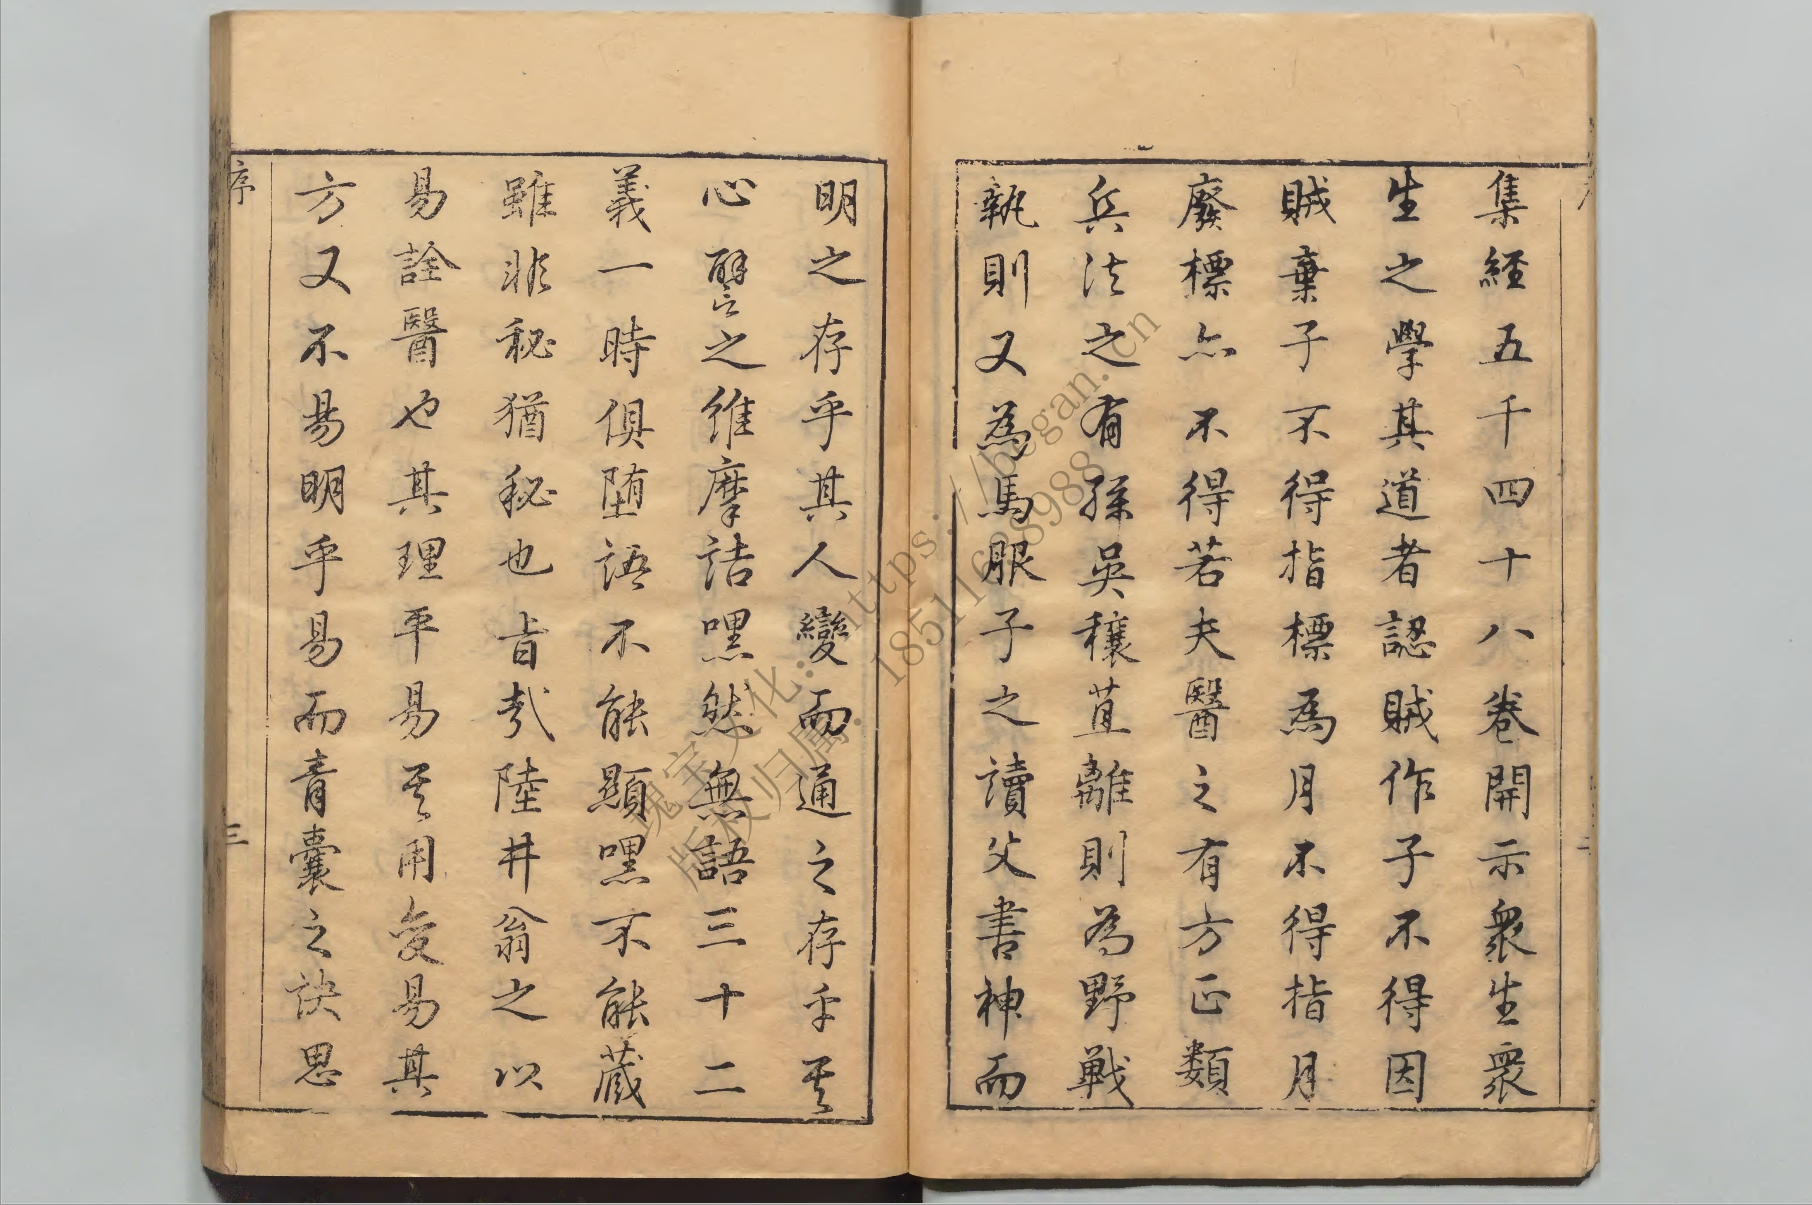 集經五千四十八卷開示衆生衆
生之學其道者認賊作子不得因
賊棄子不得指標爲月不得指月
廢標亦不得若夫醫之有方正類
兵法之有孫吳穰苴離則為野戰
執則又為馬服子之讀父書神而
明之存乎其人變而通之存乎其
心譬之維摩詰嘿然無語三十二
義一時俱墮語不能顯嘿不能藏
雖非秘猶秘也旨哉陸井翁之以
易詮醫也其理平易其用變易其
方又不易明乎易而青囊之訣思
序
三
瑰宝文化:https://bggan.cn
版权归属:18511688988